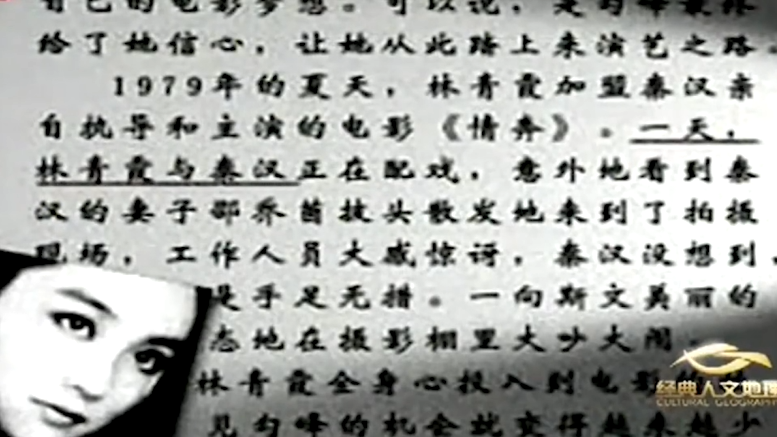 自己的电影梦想。可以说，是
给了她信心，让她从此踏上来演艺之路。
1979年的夏天，林青霞加盟秦汉亲
自执导和主演的电影《情奔》。一天，
林青霞与秦汉正在配戏，意外地看到秦
汉的妻子邵乔茵披头散发地来到了拍摄
现场，工作人员大感惊讶，秦汉没想到，
是手足无措。一向斯文美丽的
态地在摄影棚里大吵大闹。
林青霞全身心投入到电影
见勾峰的机会就变得越来越少
经典人文地理
CULTURAL GEOGRAPHY